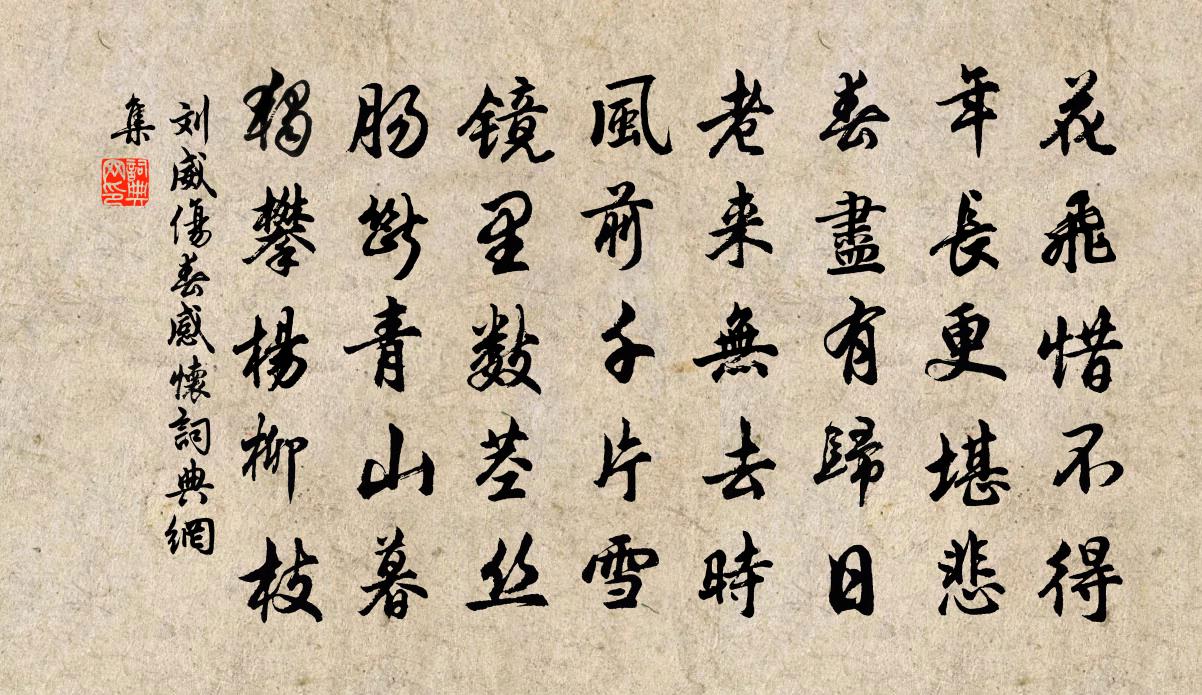 花飛惜不得
年長更堪悲
春盡有歸日
老来無去時
風前千片雪
镜里數茎丝
肠斷青山暮
獨攀楊柳枝
刘威傷春感懷詞典網
集
詞典
网印